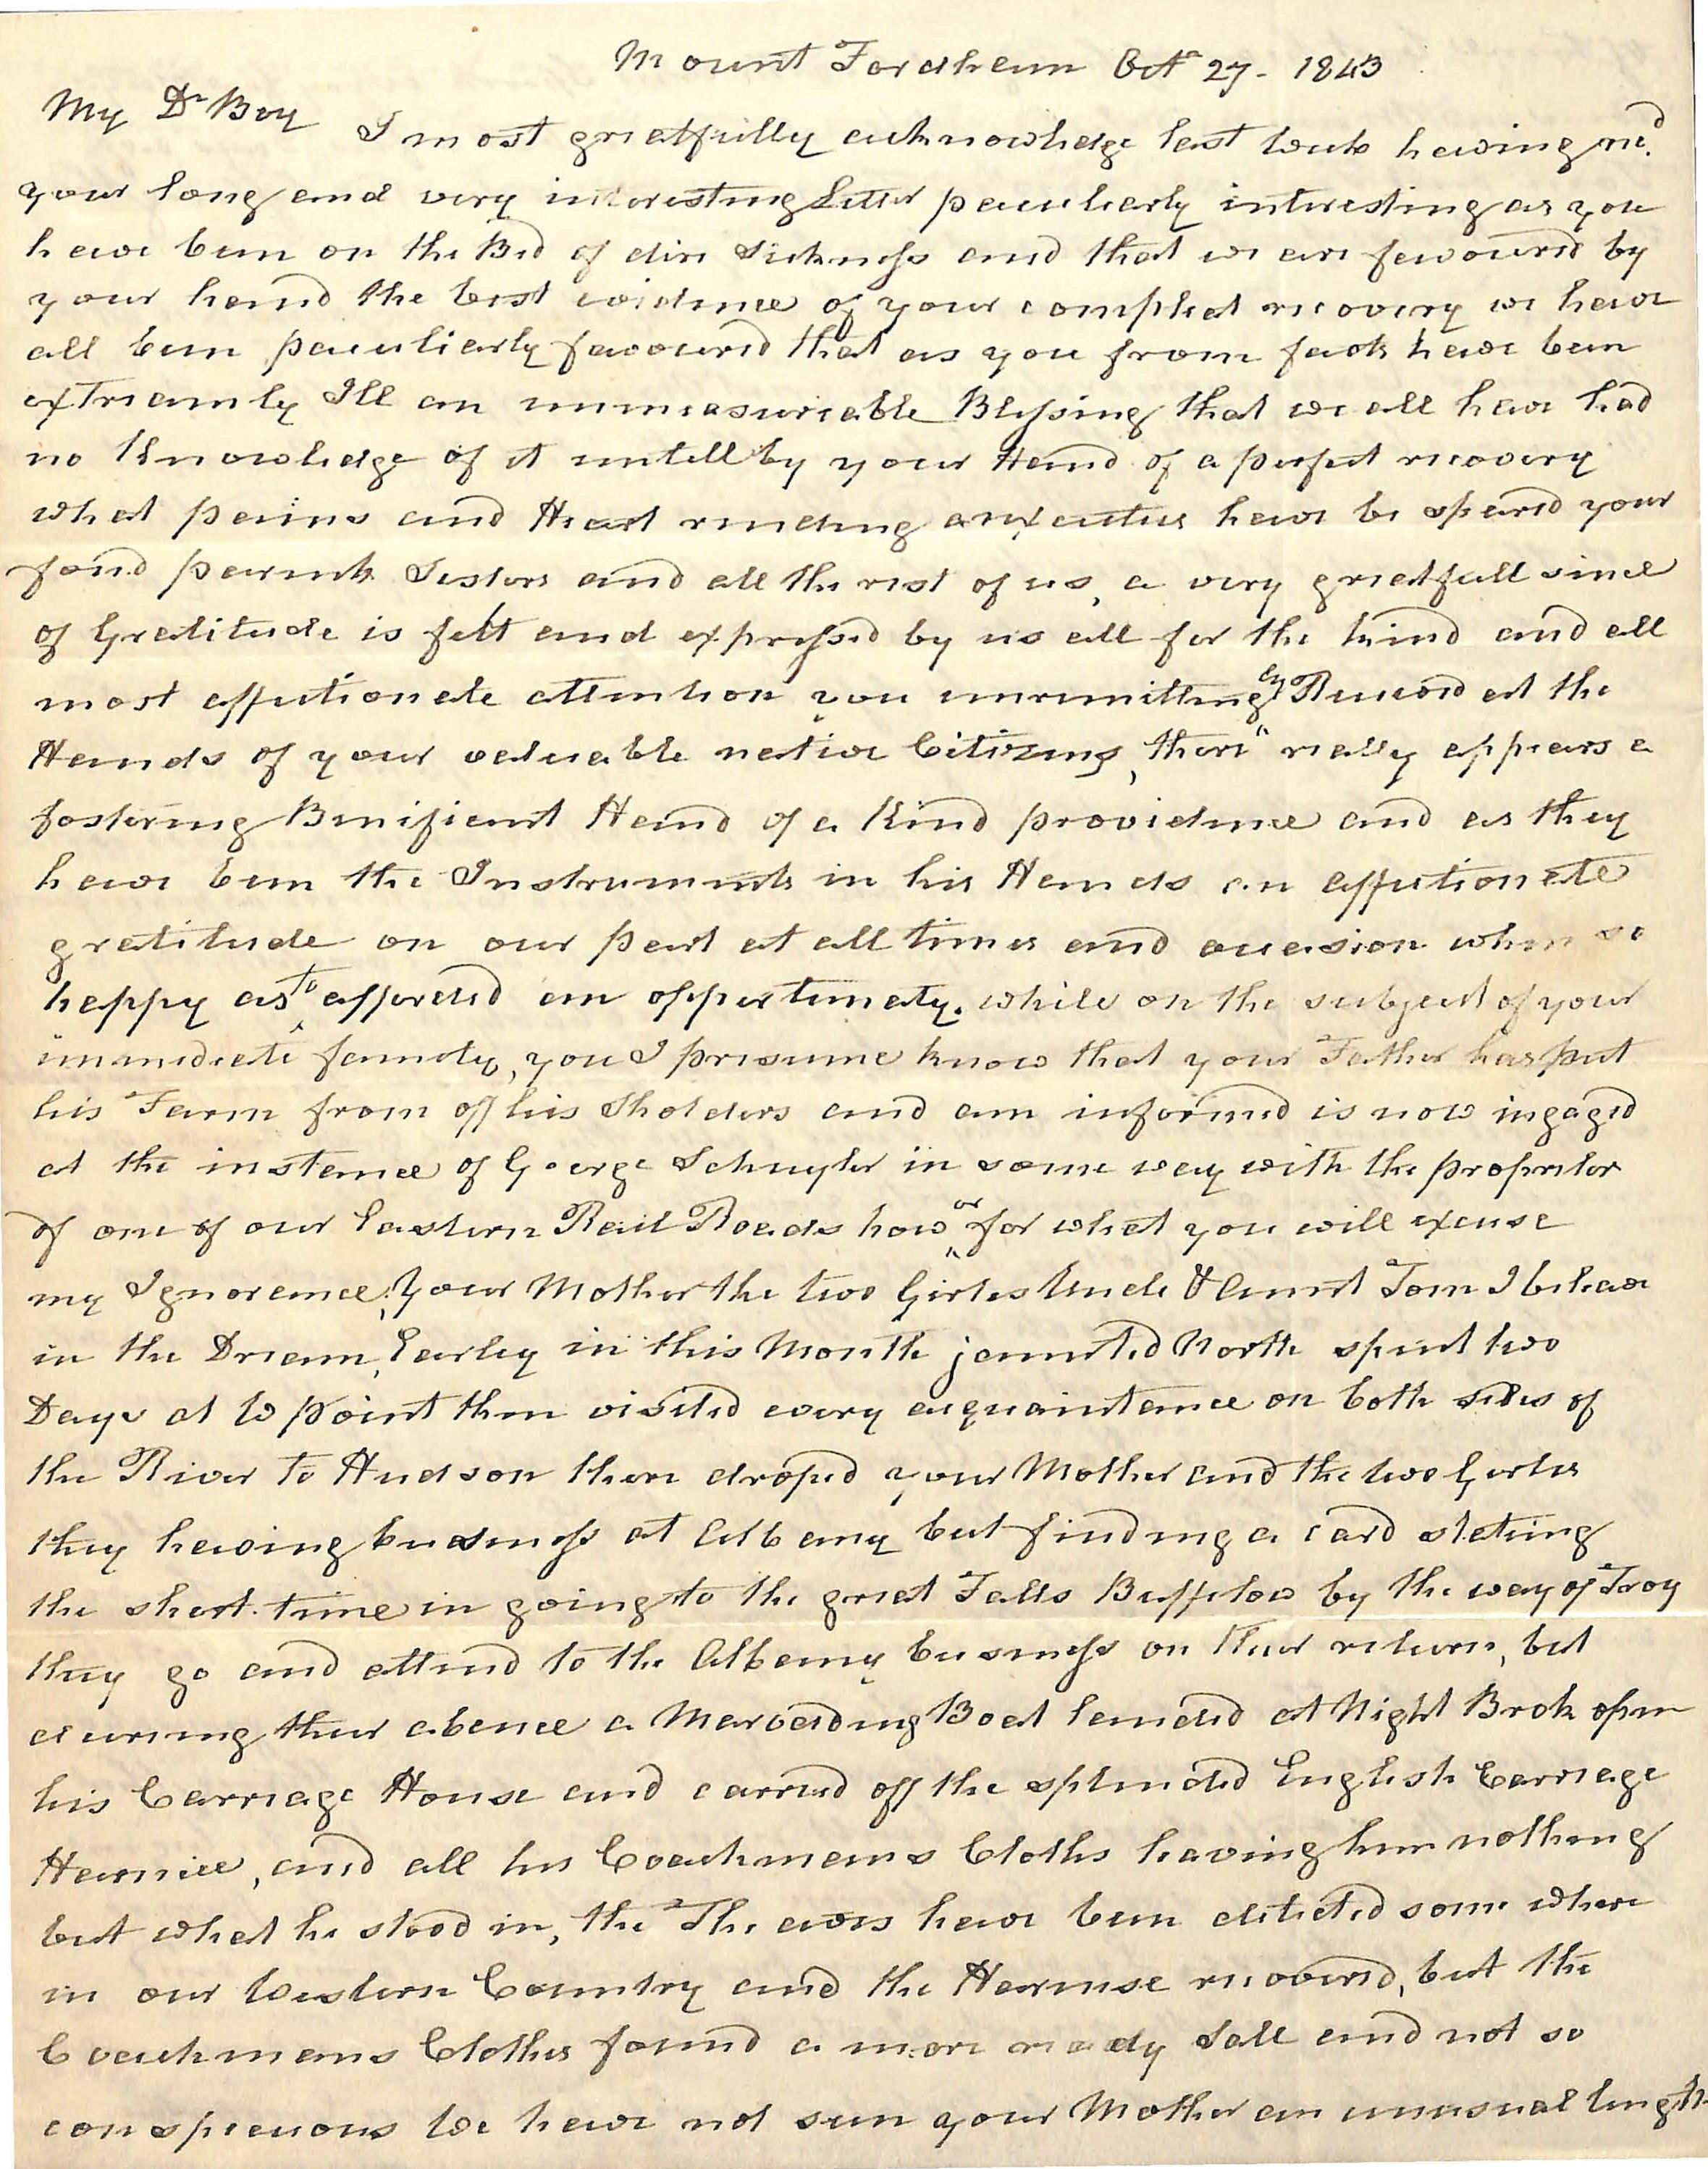 Mount Fordham Oct 27 - 1843
My Dr Boy I most greatfully acknowledge last week having recd
your long and very interesting Letter peculiarly interesting as you
have been on the Bed of dire Sickness and that we are favoured by
your hand the best evidence of your compleat recovery we have
all been peculiarly favoured that as you from facts have been
extreamly Ill an unmeasureable Blessing that we all have had
no Knowledge of it untill by your Hand of a perfect recovery
what pains and Heart rending anxieties have be spared your
fond parents Sisters and all the rest of us, a very greatfull since
of Gratitude is felt and expressed by us all for the kind and all
most affectionate attention you unremittingly Received at the
Hands of your valuable native Citizens, there really appears a
fostering Benificent Hand of a Kind providence and as they
have been the Instruments in his Hands an affectionate
gratitude on our part at all times and occasion when so
happy as to afforded an oppertunety. while on the subject of your
immediate famely, you I presume know that your Father has put
his Farm from off his Sholders and am informed is now ingaged
at the instance of George Schuyler in some way with the proprietor
of one of our Eastern Rail Roads how or for what you will excuse
my Ignorance, Your Mother the two Girles Uncle & Aunt Tom I beleave
in the Dream, Earley in this Month jaunted North spent two
Days at W point then visited every acquaintance on both sides of
the River to Hudson there droped your Mother and the two Gerles
they having business at Albany but finding a card stating
the short time in going to the great Falls Buffelow by the way of Troy
they go and attend to the Albany business on their return, but
during their abence a Maroading Boat landed at Night Brok open
his Carriage House and carried off the splended English Carriage
Harnice, and all his Coachmans Cloths leaving him nothing
but what he stood in, the Theaves have been detected some where
in our Western Country and the Harnese recovered, but the
Coachmans Clothes found a more ready Sall and not so
conspicuous We have not seen your Mother an unusual length